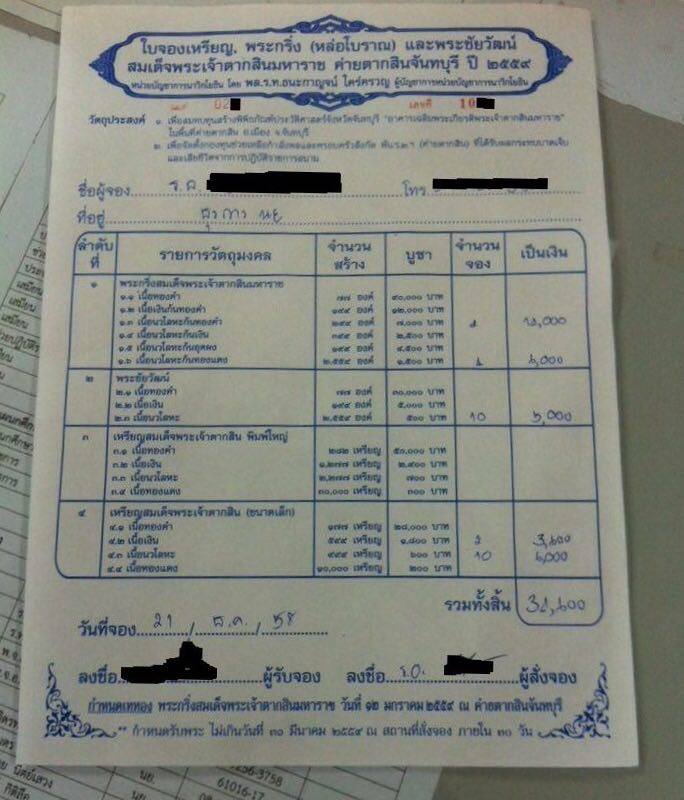 ใบจองเหรียญ, พระกริ่ง (หล่อโบราณ) และพระชัยวัฒน์
สมเด็จพระเจ้าตากสินมหาราช ค่ายตากสินจันทบุรี ปี ๒๕๕๙
หน่วยบัญชาการนาวิกโยธิน โดย พล.ร.ท.ธนะกาญจน์ ใคร่ครวญ ผู้บัญชาการหน่วยบัญชาการนาวิกโยธิน
02 เลขที่ 10
วัตถุประสงค์ ๑. เพื่อสมทบทุนสร้างพิพิธภัณฑ์ประวัติศาสตร์จังหวัดจันทบุรี "อาคารเฉลิมพระเกียรติพระเจ้าตากสินมหาราช"
ในพื้นที่ค่ายตากสิน อ.เมือง จ.จันทบุรี
๒. เพื่อจัดตั้งกองทุนช่วยเหลือกำลังพลและครอบครัวสังกัด พัน.ร.๒ฯ (ค่ายตากสิน) ที่ได้รับผลกระทบบาดเจ็บ
และเสียชีวิตจากการปฏิบัติราชการสนาม
ชื่อผู้จอง ร.ต. โทร
ที่อยู่ ธุรการ นย
ลำดับที่ รายการวัตถุมงคล จำนวนสร้าง บูชา จำนวนจอง เป็นเงิน
๑ พระกริ่งสมเด็จพระเจ้าตากสินมหาราช
๑.๑ เนื้อทองคำ ๗๗ องค์ ๔๐,๐๐๐ บาท
๑.๒ เนื้อเงินก้นทองคำ ๑๙๙ องค์ ๑๒,๐๐๐ บาท
๑.๓ เนื้อนวโลหะก้นทองคำ ๒๙๙ องค์ ๗,๐๐๐ บาท
๑.๔ เนื้อนวโลหะก้นเงิน ๓๙๙ องค์ ๒,๕๐๐ บาท
๑.๕ เนื้อนวโลหะก้นอุดผง ๑๙๙ องค์ ๔,๕๐๐ บาท
๑.๖ เนื้อนวโลหะก้นทองแดง ๒,๕๕๙ องค์ ๑,๕๐๐ บาท
๒ พระชัยวัฒน์
๒.๑ เนื้อทองคำ ๗๗ องค์ ๓๐,๐๐๐ บาท
๒.๒ เนื้อเงิน ๑๙๙ องค์ ๕,๐๐๐ บาท
๒.๓ เนื้อนวโลหะ ๒,๕๕๙ องค์ ๕๐๐ บาท 10 5,000
๓ เหรียญสมเด็จพระเจ้าตากสิน พิมพ์ใหญ่
๓.๑ เนื้อทองคำ ๒๘๒ เหรียญ ๕๐,๐๐๐ บาท
๓.๒ เนื้อเงิน ๑,๒๗๗ เหรียญ ๒,๙๐๐ บาท
๓.๓ เนื้อนวโลหะ ๒,๒๗๗ เหรียญ ๗๐๐ บาท
๓.๔ เนื้อทองแดง ๓๐,๐๐๐ เหรียญ ๓๐๐ บาท
๔ เหรียญสมเด็จพระเจ้าตากสิน (ขนาดเล็ก)
๔.๑ เนื้อทองคำ ๑๗๗ เหรียญ ๒๘,๐๐๐ บาท
๔.๒ เนื้อเงิน ๕๙๙ เหรียญ ๑,๘๐๐ บาท 2 3,600
๔.๓ เนื้อนวโลหะ ๙๙๙ เหรียญ ๖๐๐ บาท 10 6,000
๔.๔ เนื้อทองแดง ๑๐,๐๐๐ เหรียญ ๒๐๐ บาท
รวมทั้งสิ้น
วันที่จอง 21 / ธ.ค. / 58
ลงชื่อ ผู้รับจอง ลงชื่อ ร.อ. ผู้สั่งจอง
กำหนดเททอง พระกริ่งสมเด็จพระเจ้าตากสินมหาราช วันที่ ๑๒ มกราคม ๒๕๕๙ ณ ค่ายตากสินจันทบุรี
** กำหนดรับพระ ไม่เกินวันที่ ๓๐ มีนาคม ๒๕๕๙ ณ สถานที่สั่งจอง ภายใน ๓๐ วัน
256-3758
61016-17